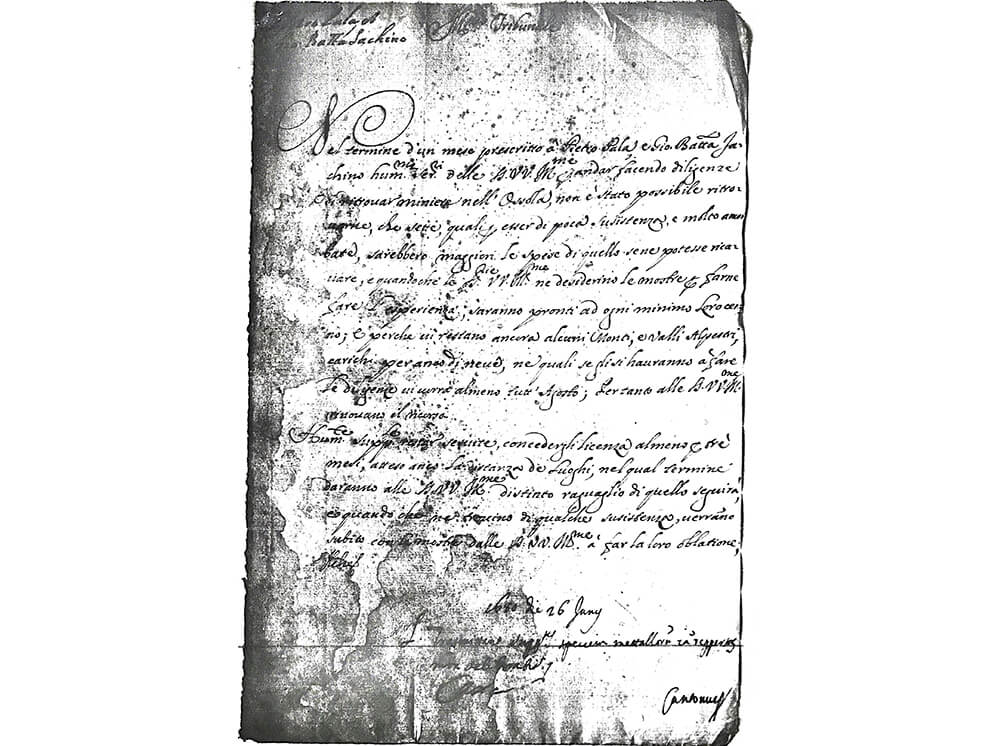 Sala et
Batta Jachino
Ill.mo Tribunale
Nel termine d'un mese prescritto à Pietro Sala e Gio. Batta Ja-
chino hum.mi ser.ri delle S. VV. Ill.me andar facendo diligenze
di ritrovar miniere nell' Ossola, non è stato possibile ritro-
varne, che sete quali esser di poca susistenza, e molto
bate, sarebbero maggiori le spese di quello sene potesse rica-
vare, e quandoche le S. VV. Ill.me ne desiderino le mostre farne
fare l'esperienza, saranno pronti ad ogni minimo loro cen-
no; e perche vi restano ancora alcuni Monti, e Valli Alpestri,
carichi per anco di neve, ne quali se gli si hauranno à fare
le diligenze vi vorrà almeno tutt' Agosto; Pertanto alle S. VV. Ill.me
ricorso
Hum.te Supp. servite, concedergli licenza almeno tre
mesi, atteso anco la distanza de luoghi, nel qual termine
daranno alle S. VV. Ill.me distinto raguaglio di quello seguirà,
e quando che ne trovino di qualche susistenza, verrano
subito con le mostre dalle S. VV. Ill.me à far la loro oblatione,
die 26 Junij
species metallor.
non